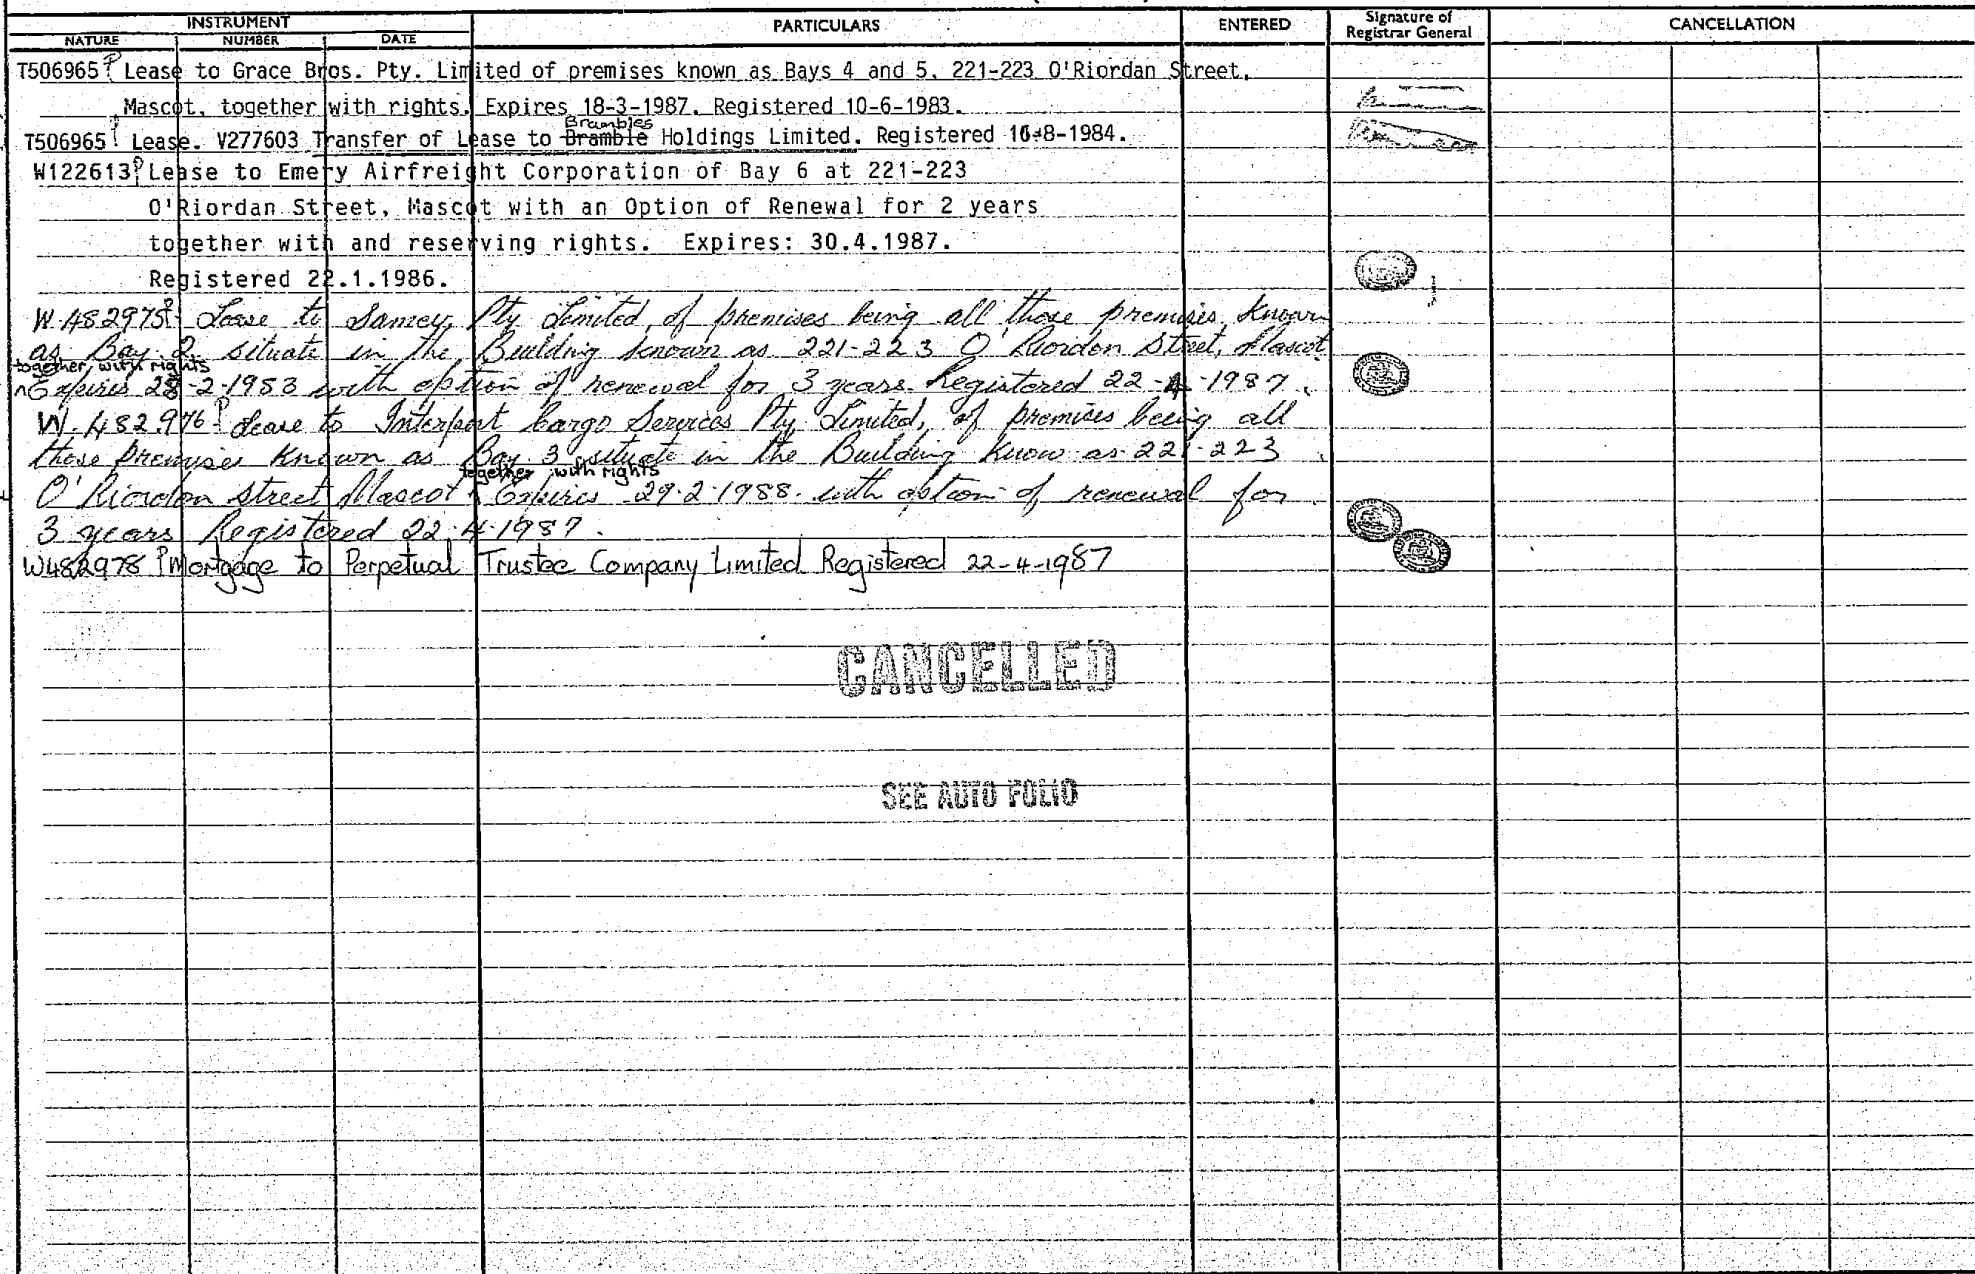 INSTRUMENT
NATURE NUMBER DATE PARTICULARS ENTERED Signature of Registrar General CANCELLATION
T506965P Lease to Grace Bros. Pty. Limited of premises known as Bays 4 and 5, 221-223 O'Riordan Street,
Mascot, together with rights. Expires 18-3-1987. Registered 10-6-1983.
Brambles
T506965P Lease. V277603 Transfer of Lease to Bramble Holdings Limited. Registered 16-8-1984.
W122613P Lease to Emery Airfreight Corporation of Bay 6 at 221-223
O'Riordan Street, Mascot with an Option of Renewal for 2 years
together with and reserving rights. Expires: 30.4.1987.
Registered 22.1.1986.
W.482975P Lease to Samey Pty Limited, of premises being all those premises known
as Bay 2 situate in the Building known as 221-223 O'Riordon Street, Mascot
together with rights
^ Expires 28-2-1988 with option of renewal for 3 years. Registered 22-4-1987.
W.482976P Lease to Interport Cargo Services Pty Limited, of premises being all
those premises known as Bay 3 situate in the Building know as 221-223
together with rights
O'Riordon Street Mascot ^ Expires 29-2-1988 with option of renewal for
3 years Registered 22-4-1987.
W482978P Mortgage to Perpetual Trustee Company Limited Registered 22-4-1987
CANCELLED
SEE AUTO FOLIO